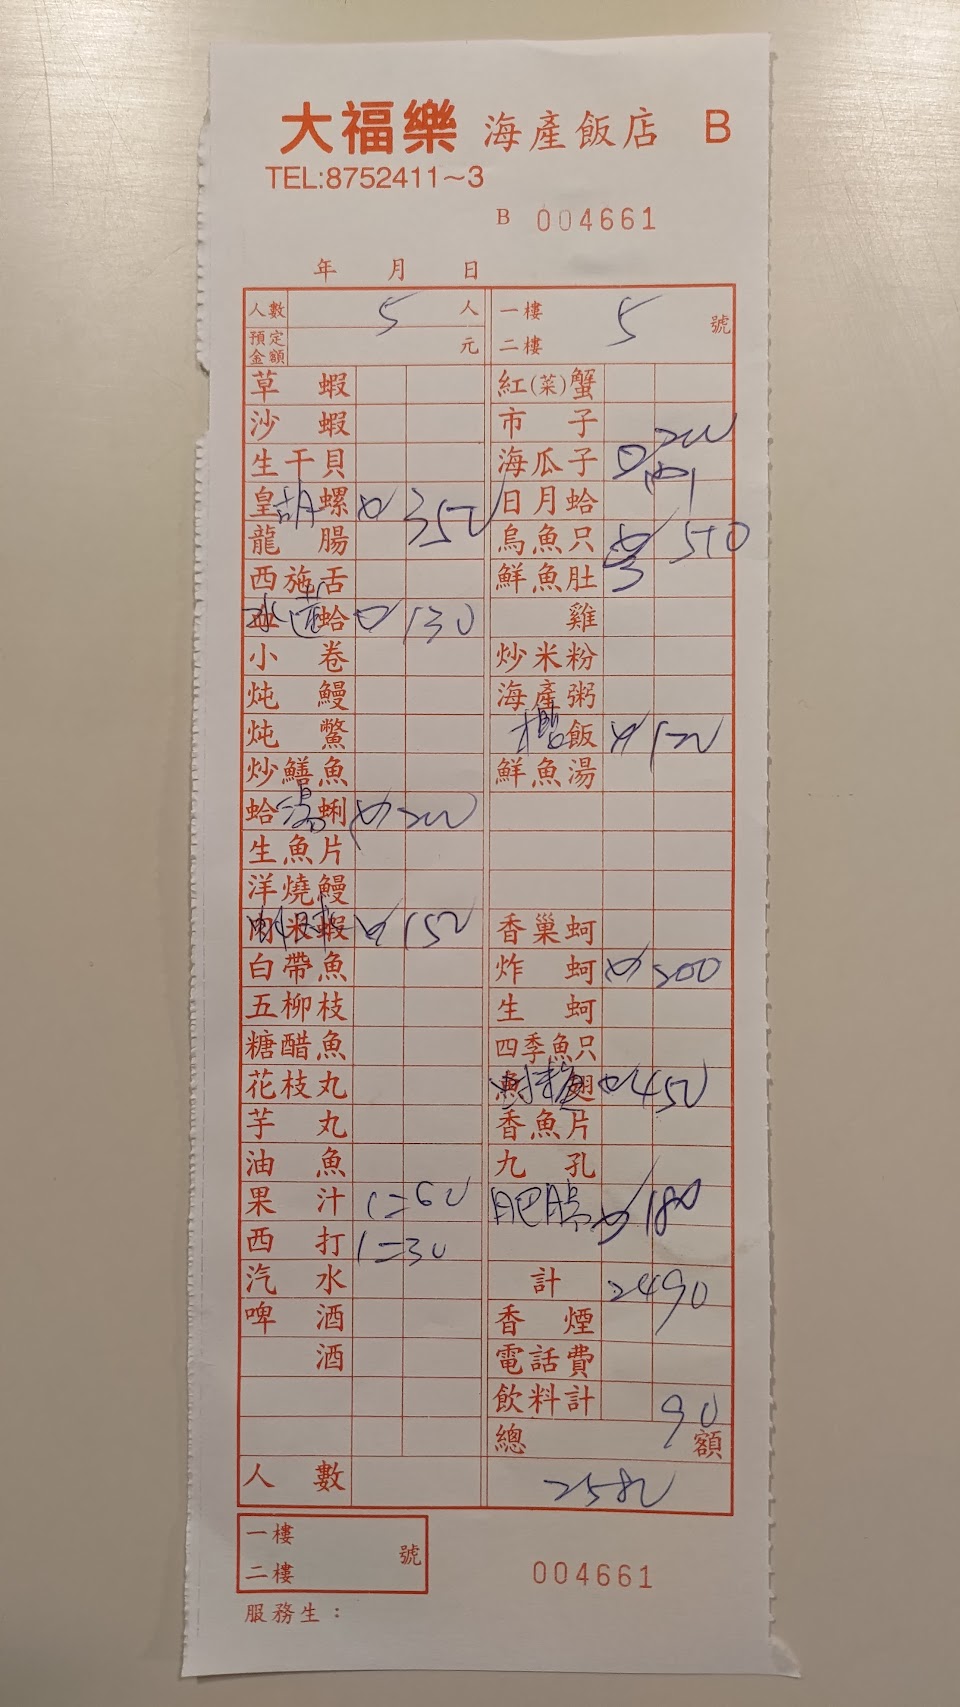 大福樂 海產飯店 B
TEL:8752411~3
B 004661
年 月 日
人數 5 人 一樓 5 號
預定金額 元 二樓
草蝦 紅(菜)蟹
沙蝦 市子
生干貝 海瓜子 200
皇螺 胡 350 日月蛤
龍腸 烏魚只 510
西施舌 鮮魚肚
水蓮 蛤 130 雞
小卷 炒米粉
炖鰻 海產粥
炖鱉 飯
炒鱔魚 鮮魚湯
蛤蜊 湯 200
生魚片
洋燒鰻
蝦 150 香巢蚵
白帶魚 炸蚵 200
五柳枝 生蚵
糖醋魚 四季魚只
花枝丸 翅 450
芋丸 香魚片
油魚 九孔
果汁 1=60 肥腸 180
西打 1=30
汽水 計 2490
啤酒 香煙
酒 電話費
飲料計 90
總額
人數 2580
一樓 號
二樓
004661
服務生：